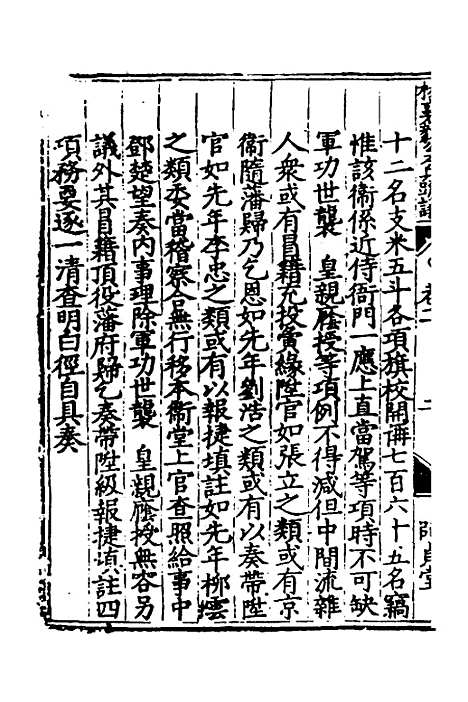 十二名支米五斗各項旗校開冊七百六十五名竊
惟該衛係近侍衙門一應上直當駕等項時不可缺
軍功世襲　皇親廕授等項例不得減但中間流雜
人衆或有冒籍充投夤緣陞官如張立之類或有京
衛隨藩歸乃乞恩如先年劉浩之類或有以奏帶陞
官如先年李忠之類或有以報捷填註如先年柳
之類委當稽察合無行移本衛堂上官查照給事中
鄧楚望奏內事理除軍功世襲　皇親廕授無容另
議外其冒籍頂役藩府歸乞奏帶陞級報捷填註四
項務要逐一清查明白徑自具奏
卷二
二